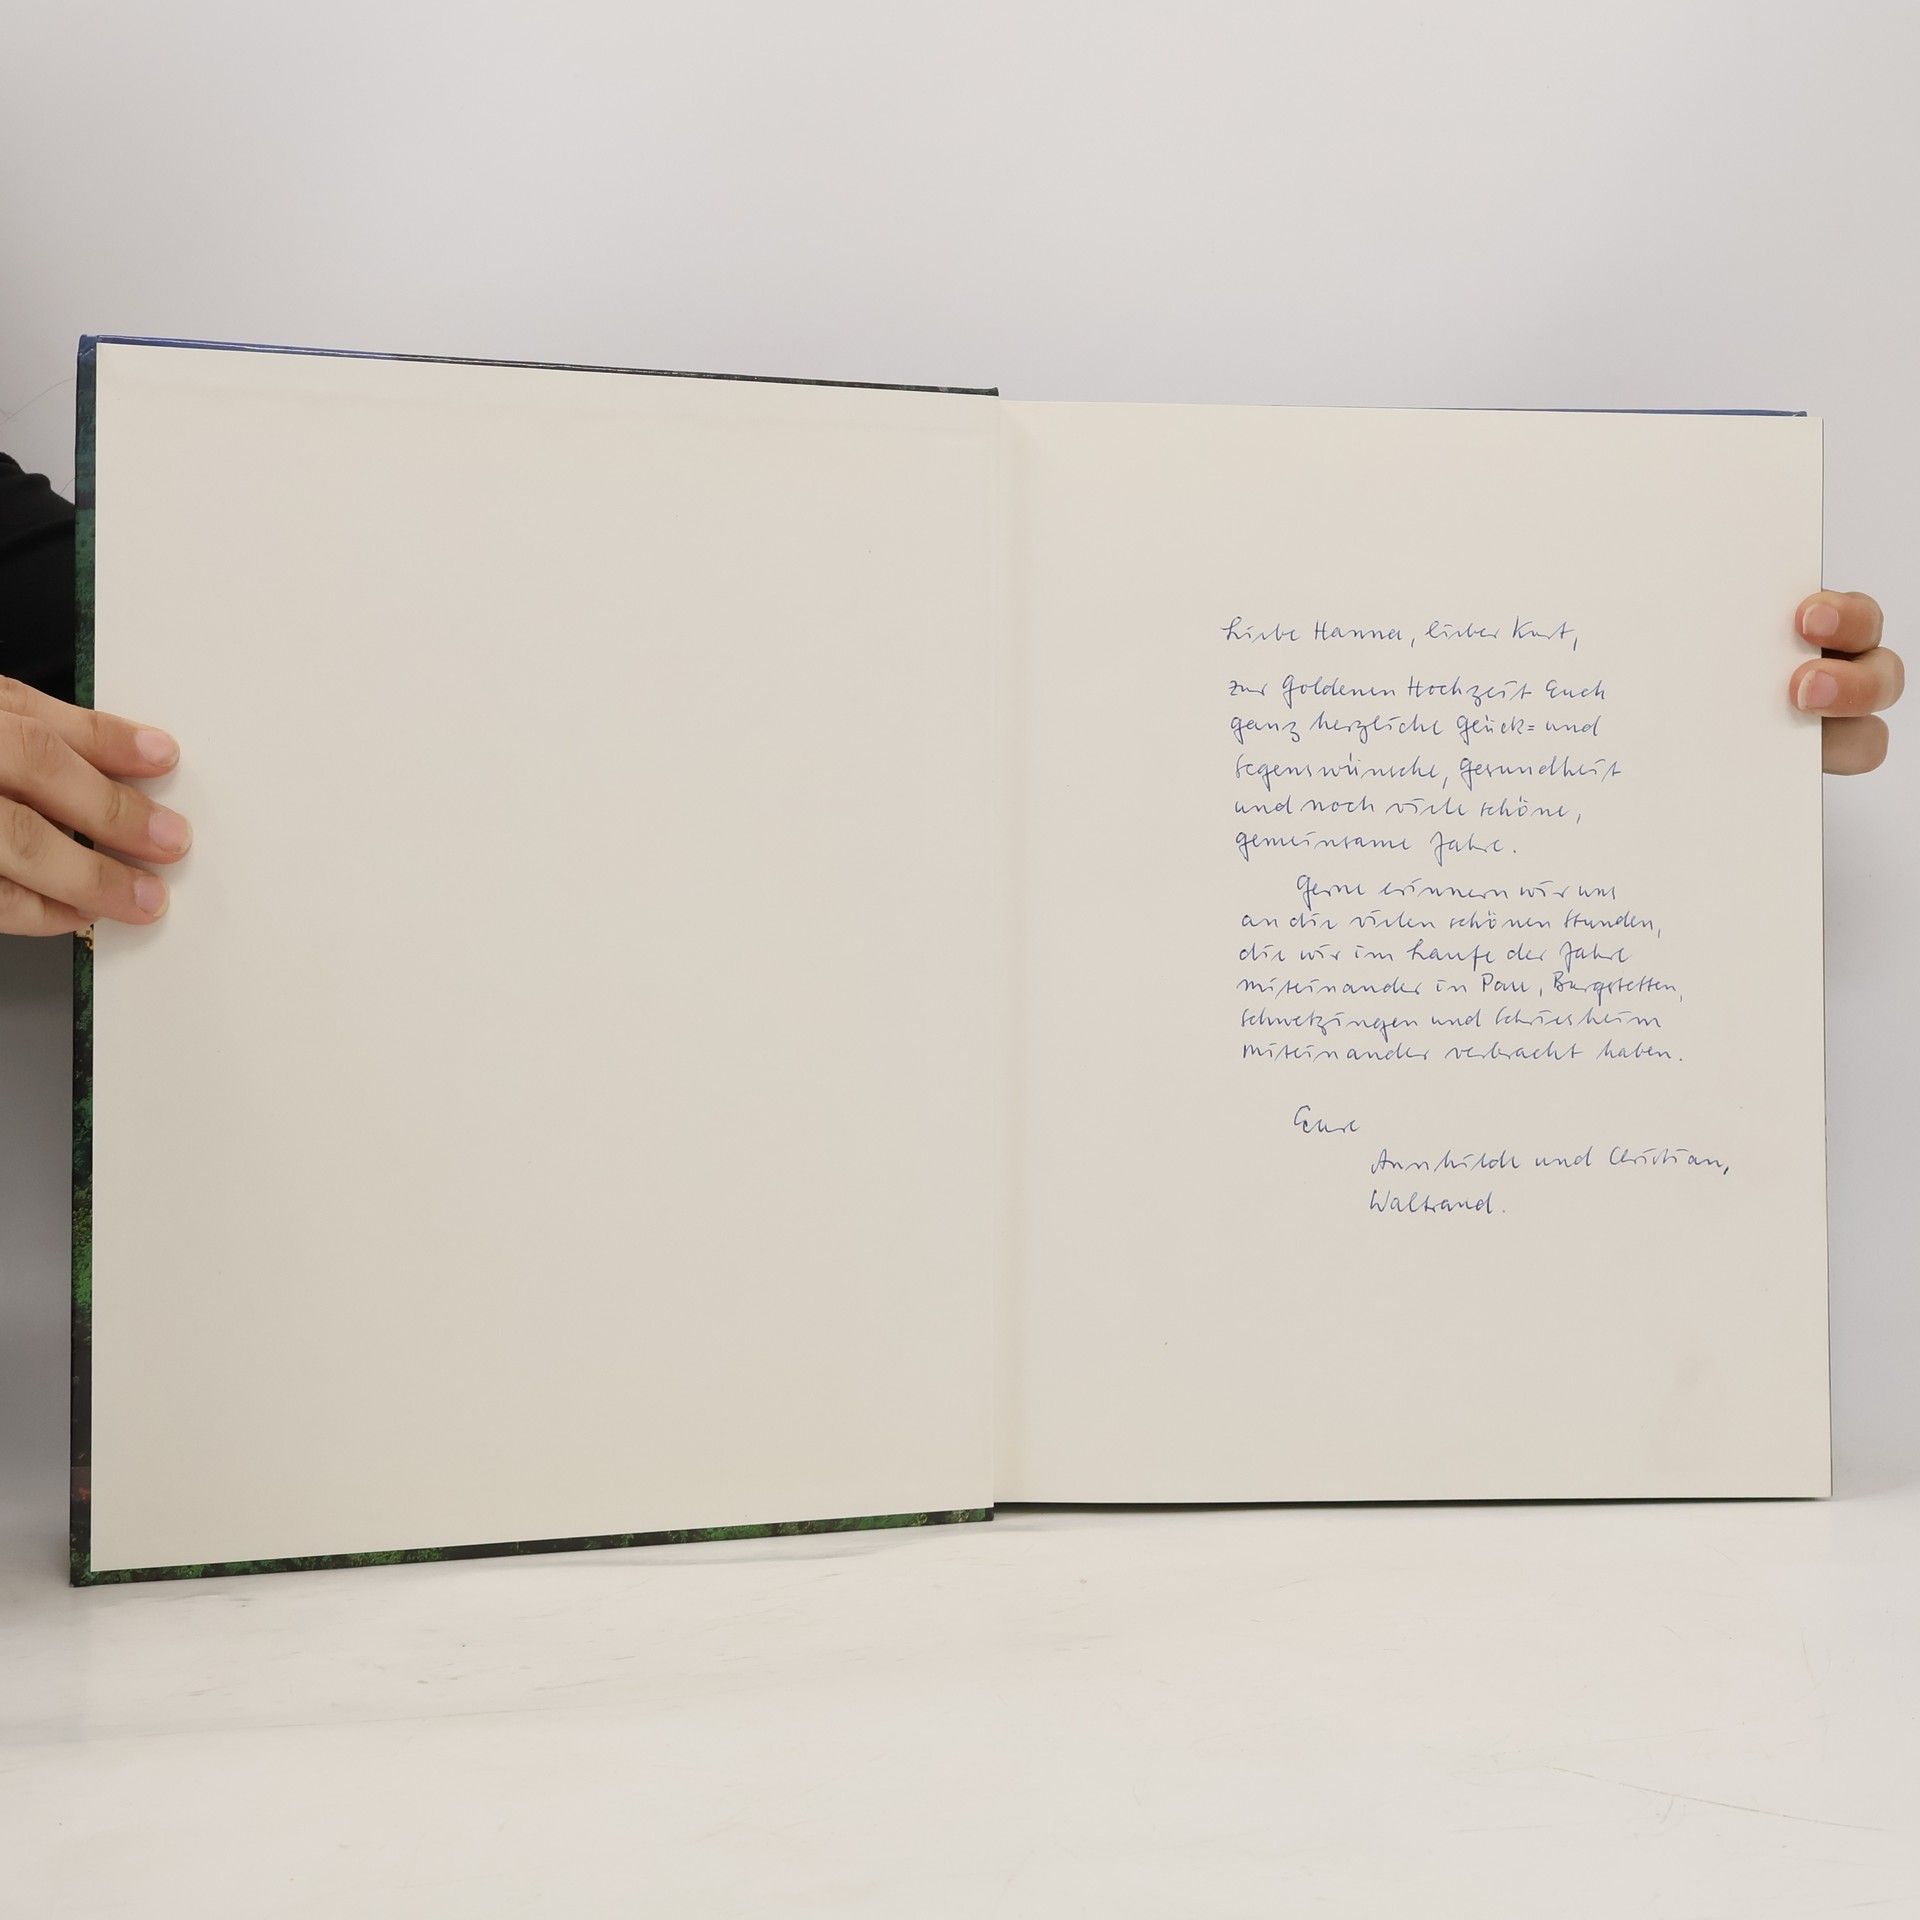 Liebe Hanna, lieber Kurt,
zur Goldenen Hochzeit Euch
ganz herzliche Glück= und
Segenswünsche, Gesundheit
und noch viele schöne,
gemeinsame Jahre.
Gerne erinnern wir uns
an die vielen schönen Stunden,
die wir im Laufe der Jahre
miteinander in Pau, Burgstetten,
Schwetzingen und Schriesheim
miteinander verbracht haben.
Eure
Annhilde und Christian,
Waltraud.